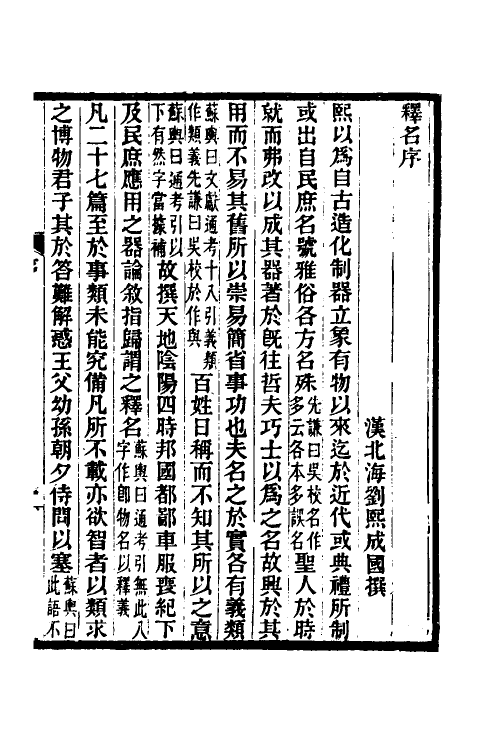 釋名序
漢北海劉熙成國撰
熙以爲自古造化制器立象有物以來迄於近代或典禮所制
或出自民庶名號雅俗各方名殊先謙曰吳校名作多云各本多誤名聖人於時
就而弗改以成其器著於旣往哲夫巧士以爲之名故興於其
用而不易其舊所以崇易簡省事功也夫名之於實各有義類
蘇輿曰文獻通考十入引義類作類義先謙曰吳校於作與百姓日稱而不知其所以之意
蘇輿曰通考引以下有然字當據補故撰天地陰陽四時邦國都鄙車服喪紀下
及民庶應用之器論敘指歸謂之釋名蘇輿曰通考引無此八字作卽物名以釋義
凡二十七篇至於事類未能究備凡所不載亦欲智者以類求
之博物君子其於答難解惑王父幼孫朝夕侍問以塞蘇輿曰此語不
序
一